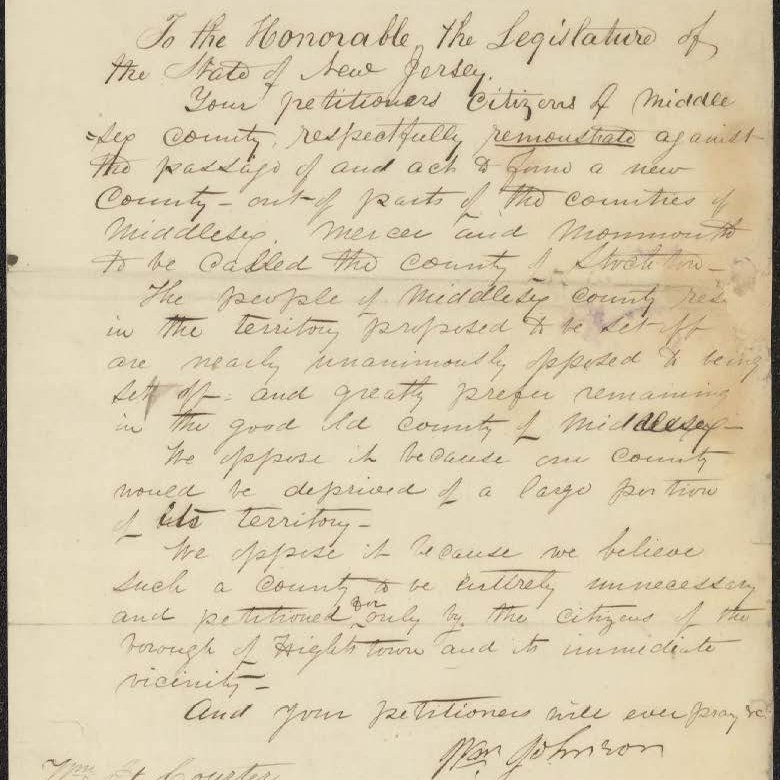 To the Honorable, the Legislature of
the State of New Jersey.
Your petitioners Citizens of Middle
-sex county, respectfully remonstrate against
the passage of and act to form a new
County - out of parts of the counties of
Middlesex Mercer and Monmouth
to be called the county of Stockton -
The people of Middlesex county res
in the territory proposed to be set off
are nearly unanimously opposed to being
set off - and greatly prefer remaining
in the good old county of Middlesex -
We oppose it because our county
would be deprived of a large portion
of its territory -
We oppose it because we believe
such a county to be entirely unnecessary
and petitioned for only by the citizens of the
borough of Hightstown and its immediate
vicinity -
And your petitioners will ever pray &c
Wm Johnson
Wm H Courter